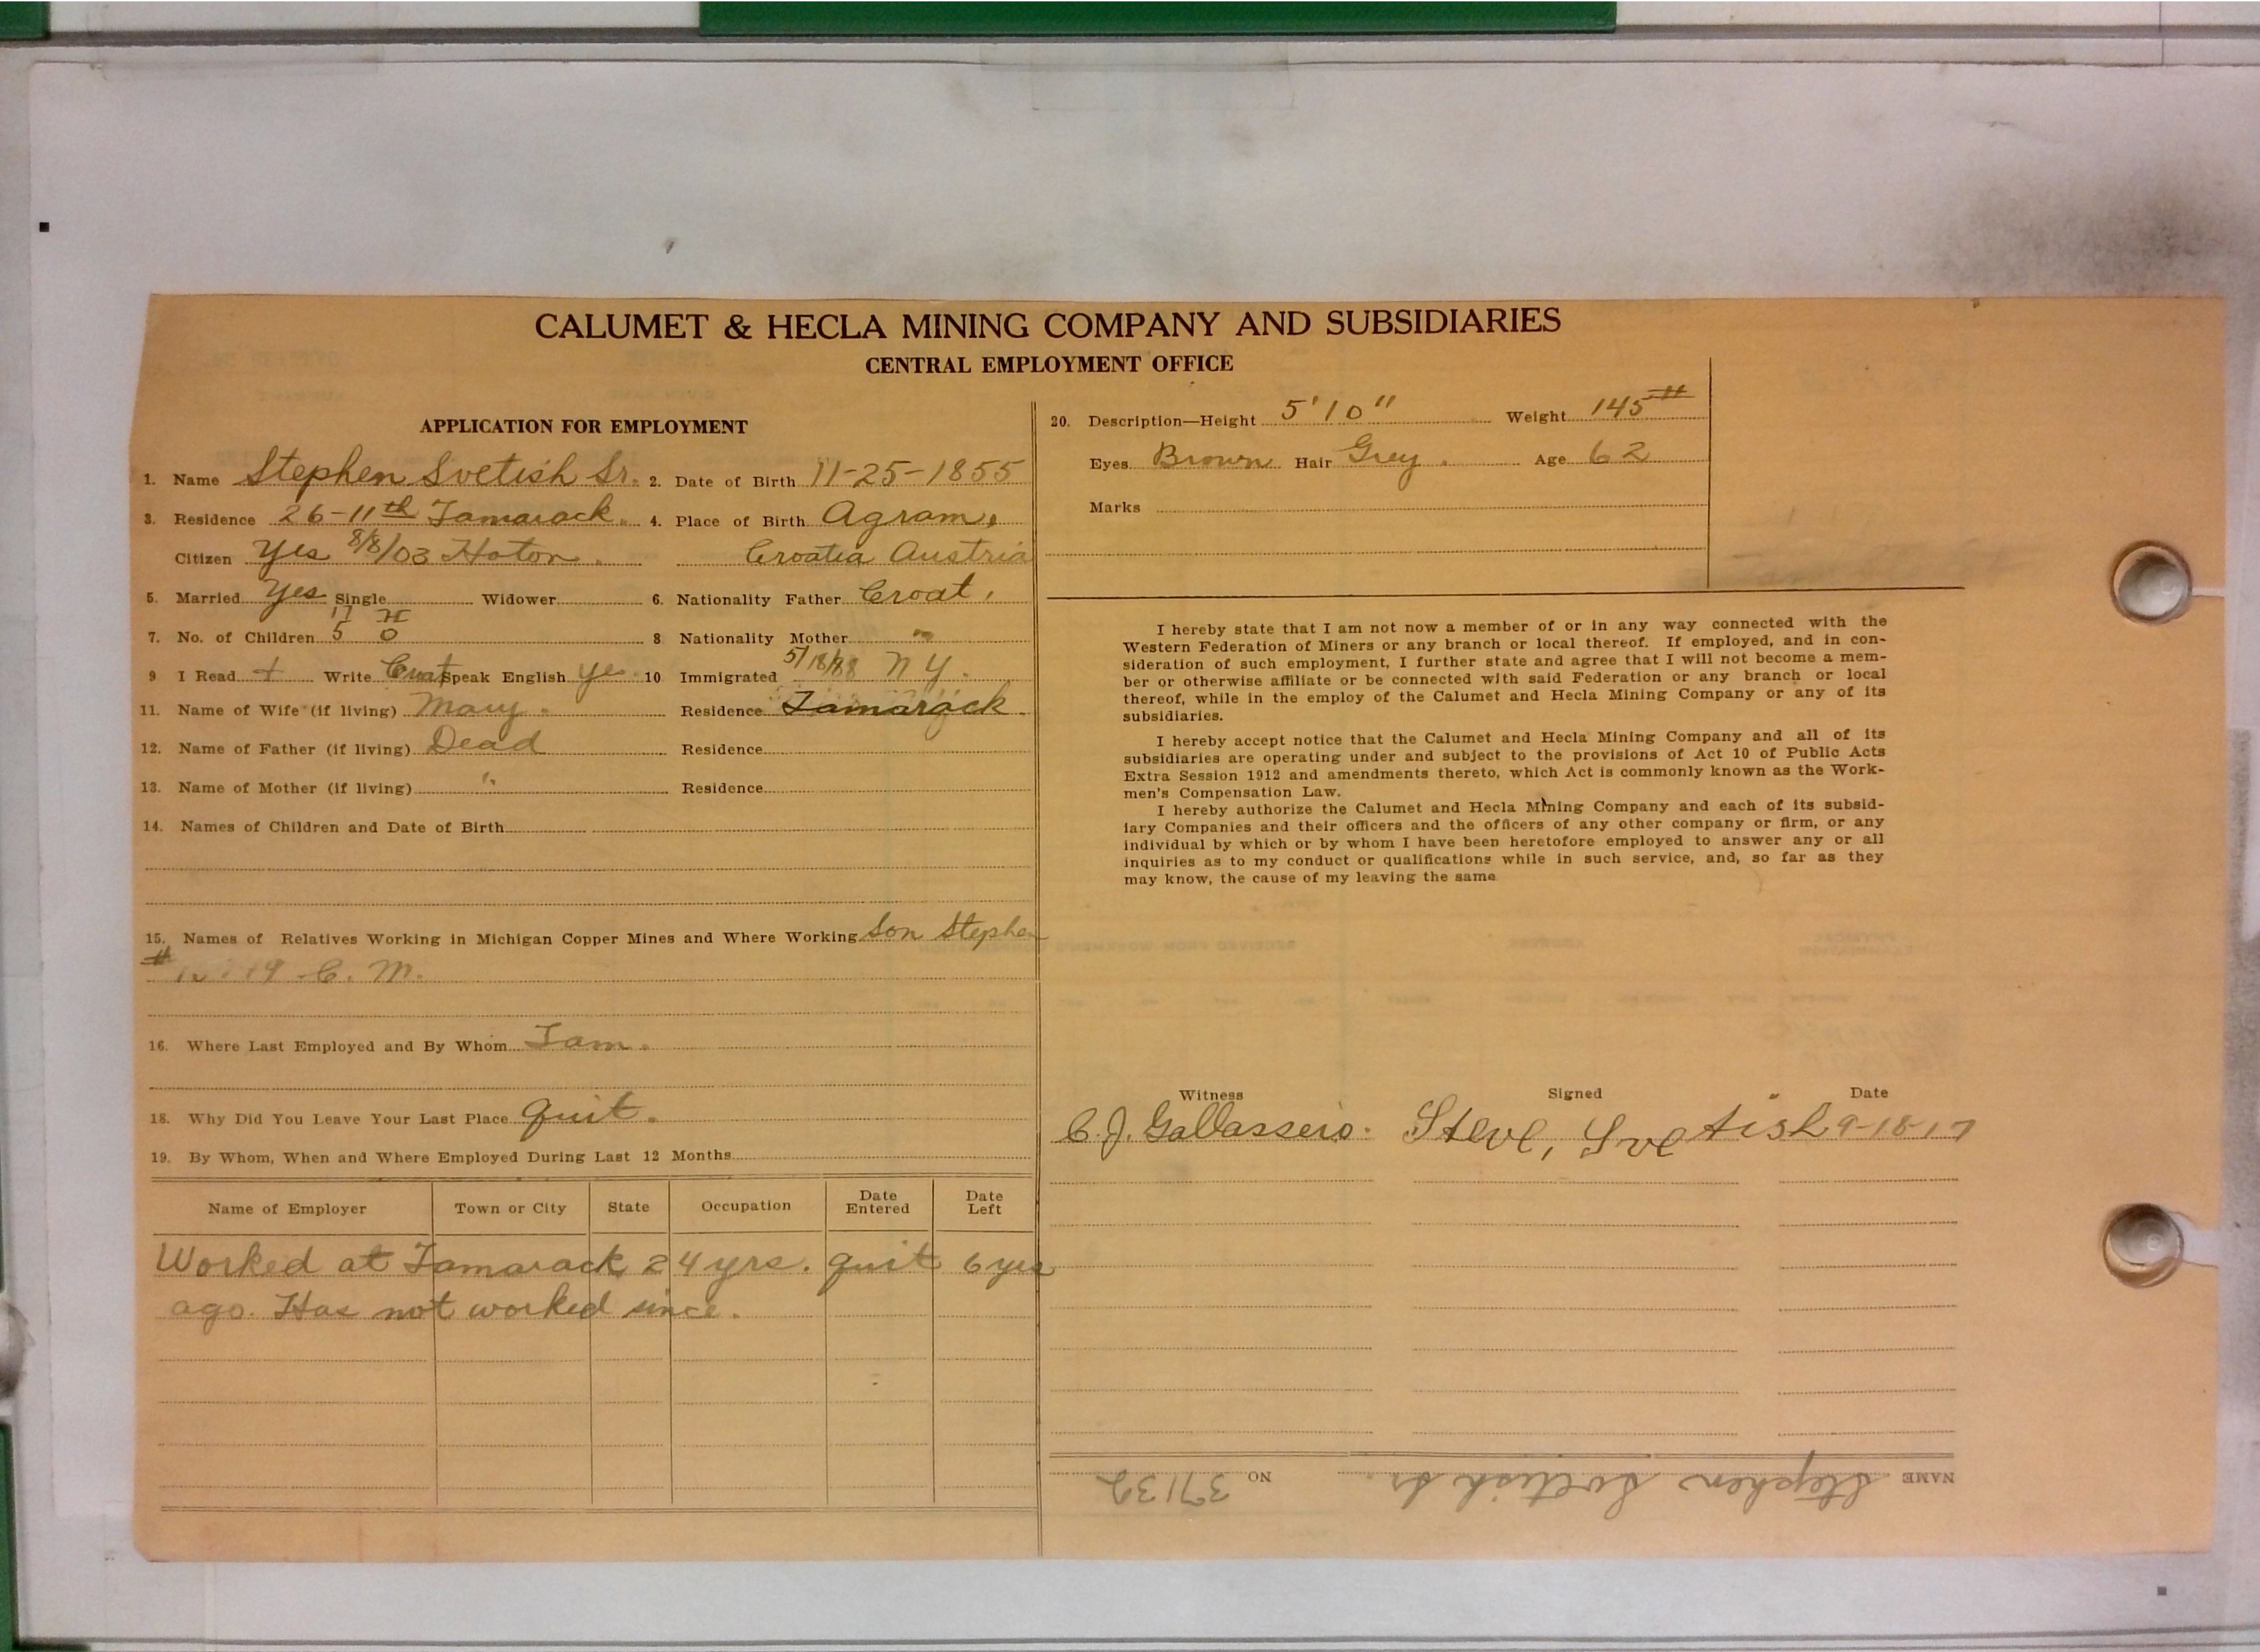 CALUMET & HECLA MINING COMPANY AND SUBSIDIARIES
CENTRAL EMPLOYMENT OFFICE
APPLICATION FOR EMPLOYMENT
1. Name Stephen Svetish Sr. 2. Date of Birth 11-25-1855
3. Residence 26-11th Tamarack. 4. Place of Birth Agram,
Citizen Yes 8/8/03 Hoton. Croatia Austria
5. Married Yes Single Widower 6. Nationality Father Croat.
17 H
7. No. of Children 5 0 8 Nationality Mother "
9 I Read + Write Croat Speak English ye 10 Immigrated 5/18/88 N Y.
11. Name of Wife (if living) Mary. Residence Tamarack.
12. Name of Father (if living) Dead Residence
13. Name of Mother (if living) " Residence
14. Names of Children and Date of Birth
15. Names of Relatives Working in Michigan Copper Mines and Where Working Son Stephen
# 19 - C. M.
16. Where Last Employed and By Whom Tam.
18. Why Did You Leave Your Last Place quit.
19. By Whom, When and Where Employed During Last 12 Months
Name of Employer Town or City State Occupation Date Entered Date Left
Worked at Tamarack 24 yrs. quit 6 yrs
ago. Has not worked since.
20. Description—Height 5'10" Weight 145#
Eyes Brown Hair Grey. Age 62
Marks
I hereby state that I am not now a member of or in any way connected with the
Western Federation of Miners or any branch or local thereof. If employed, and in con-
sideration of such employment, I further state and agree that I will not become a mem-
ber or otherwise affiliate or be connected with said Federation or any branch or local
thereof, while in the employ of the Calumet and Hecla Mining Company or any of its
subsidiaries.
I hereby accept notice that the Calumet and Hecla Mining Company and all of its
subsidiaries are operating under and subject to the provisions of Act 10 of Public Acts
Extra Session 1912 and amendments thereto, which Act is commonly known as the Work-
men's Compensation Law.
I hereby authorize the Calumet and Hecla Mining Company and each of its subsid-
iary Companies and their officers and the officers of any other company or firm, or any
individual by which or by whom I have been heretofore employed to answer any or all
inquiries as to my conduct or qualifications while in such service, and, so far as they
may know, the cause of my leaving the same
Witness Signed Date
C. J. Gallassero. Steve, Svetish 9-18-17
NAME Stephen Svetish Sr. NO 37132